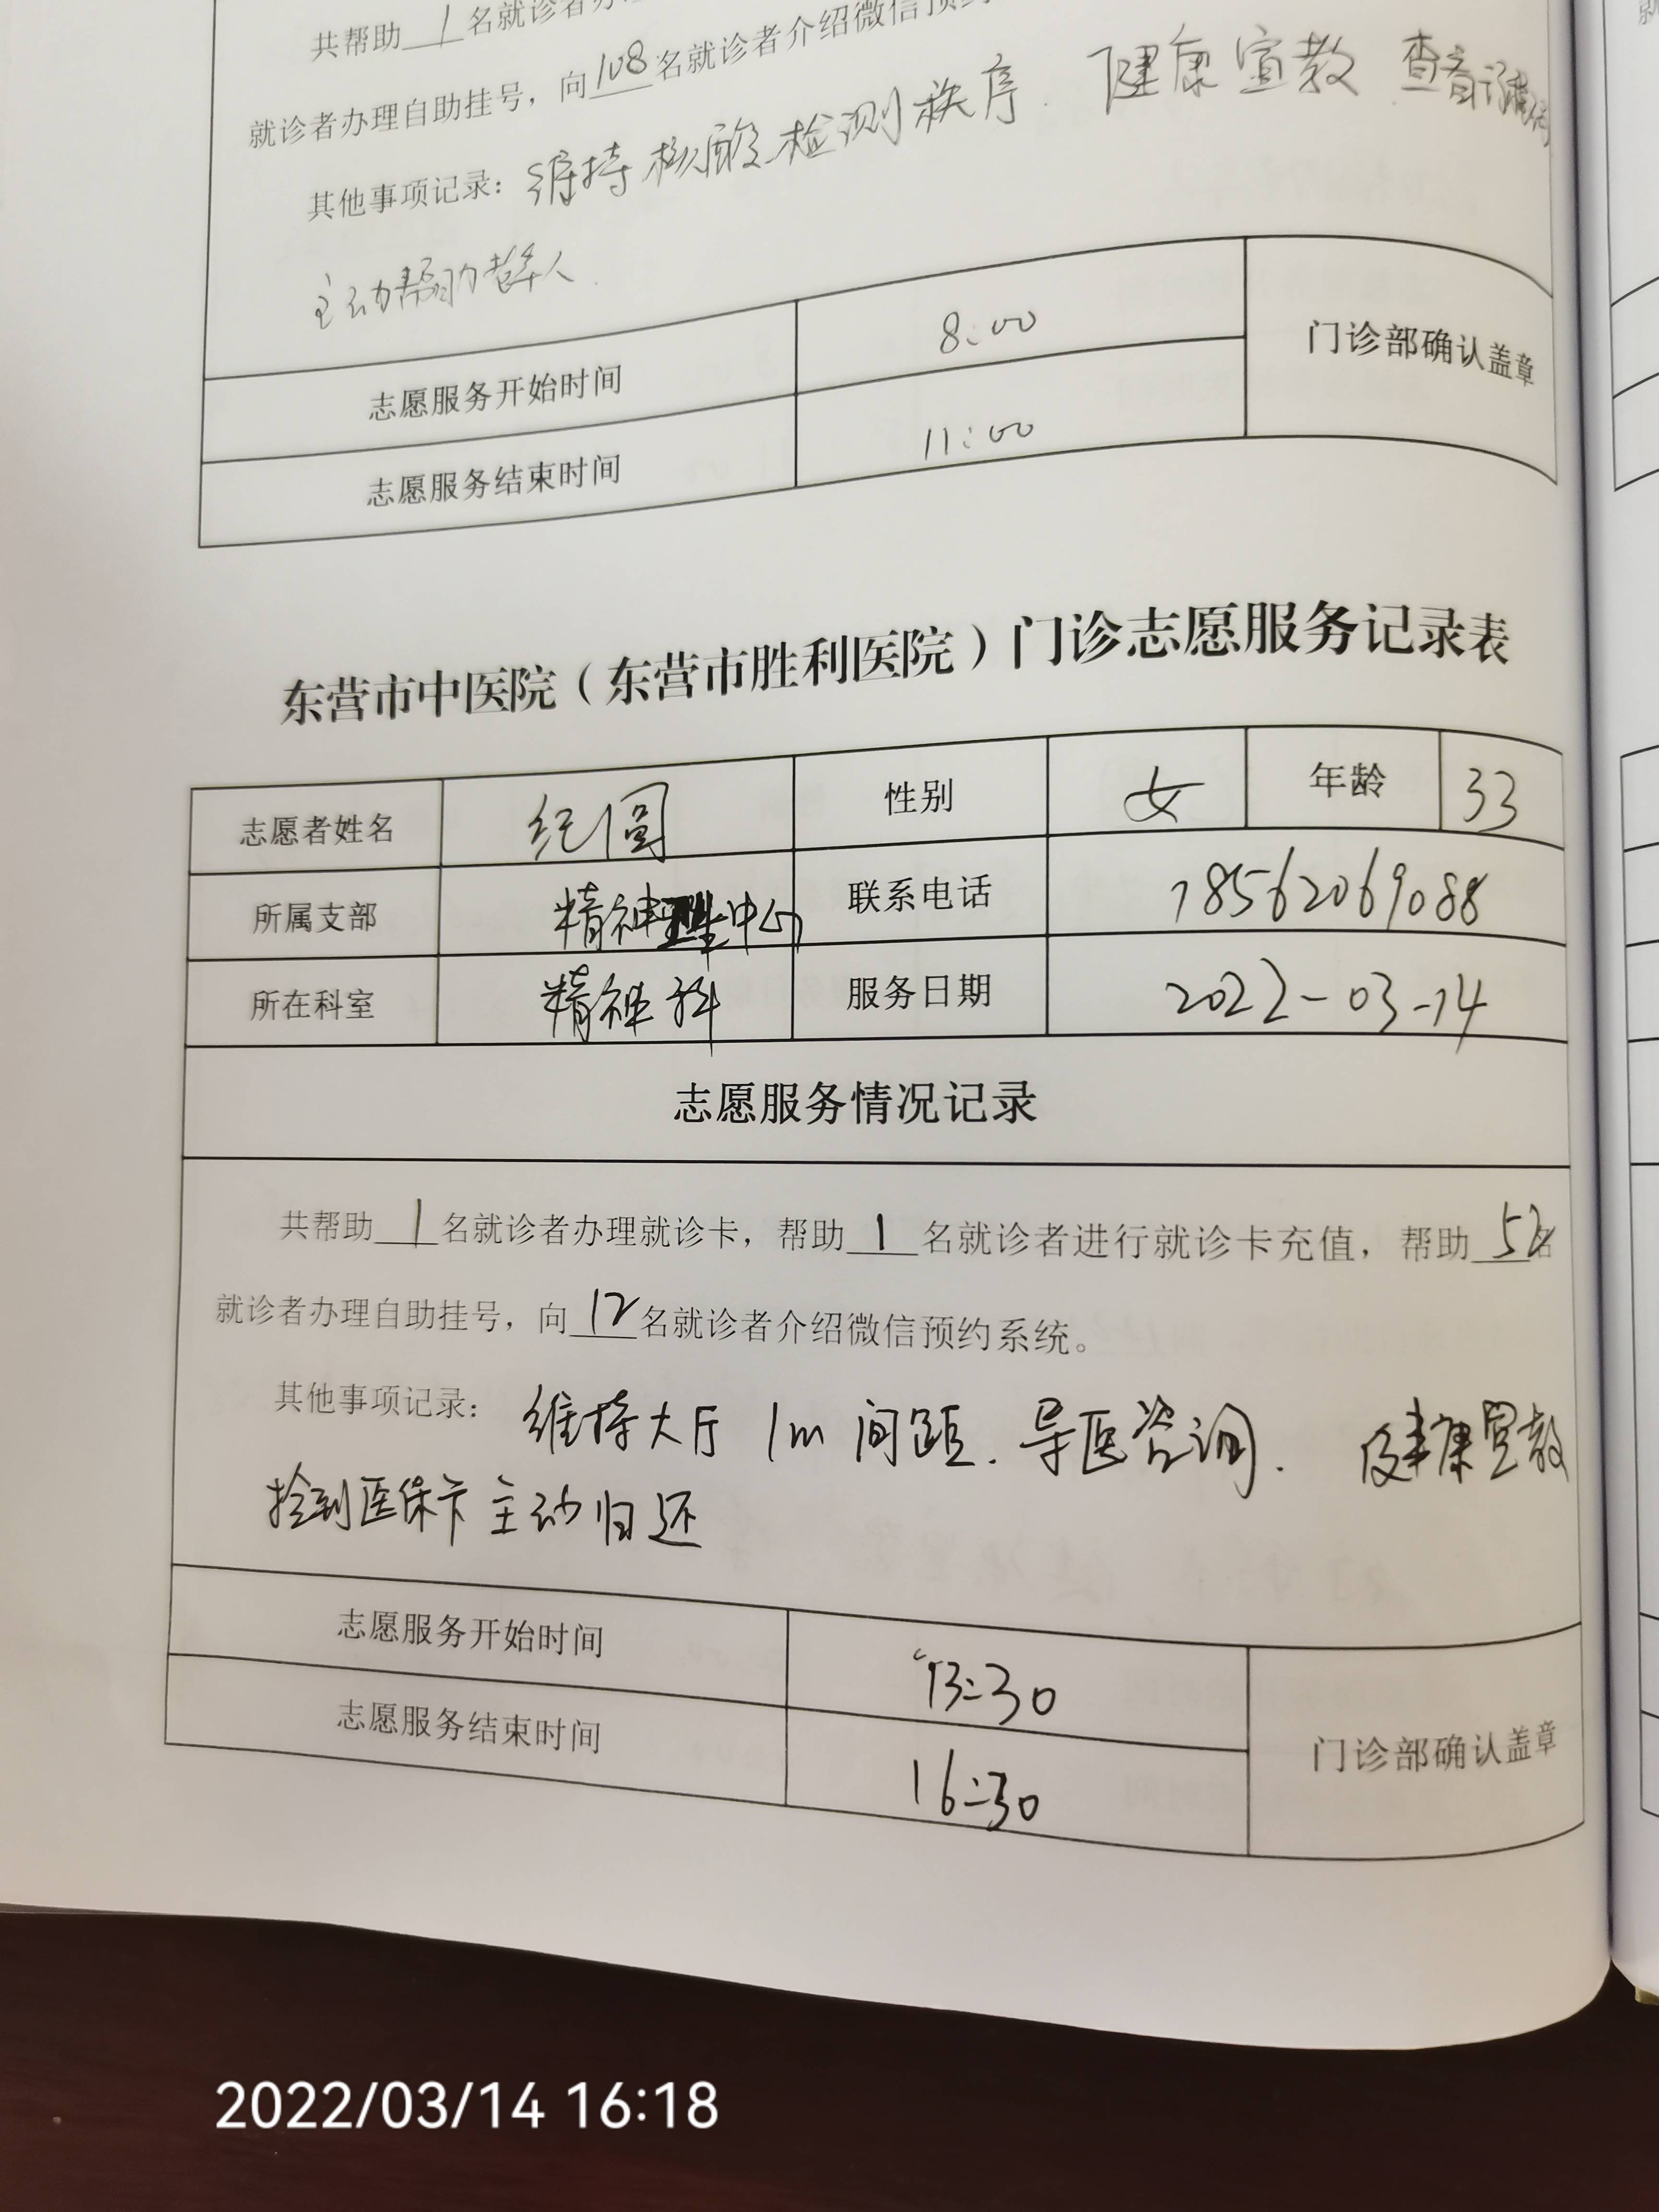 共帮助 1 名就诊者办
就诊者办理自助挂号，向 108 名就诊者介绍微信预约
其他事项记录：维持核酸检测秩序．健康宣教
主动帮助老年人．
志愿服务开始时间 8:00 门诊部确认盖章
志愿服务结束时间 11:00
东营市中医院（东营市胜利医院）门诊志愿服务记录表
志愿者姓名 纪圆 性别 女 年龄 33
所属支部 精神 中心 联系电话 18562069088
所在科室 精神科 服务日期 2022-03-14
志愿服务情况记录
共帮助 1 名就诊者办理就诊卡，帮助 1 名就诊者进行就诊卡充值，帮助 52 名
就诊者办理自助挂号，向 12 名就诊者介绍微信预约系统。
其他事项记录：维持大厅 1m 间距．导医咨询．健康宣教
捡到医保卡主动归还
志愿服务开始时间 13:30 门诊部确认盖章
志愿服务结束时间 16:30
2022/03/14 16:18